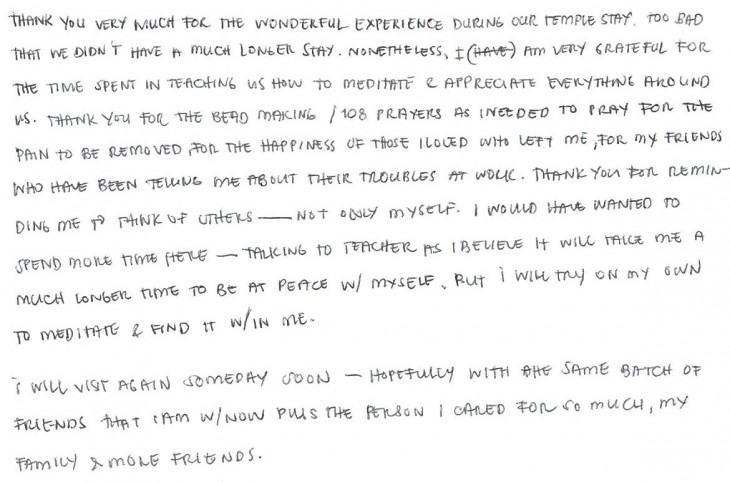 THANK YOU VERY MUCH FOR THE WONDERFUL EXPERIENCE DURING OUR TEMPLE STAY. TOO BAD
THAT WE DIDN'T HAVE A MUCH LONGER STAY. NONETHELESS, I (HAVE) AM VERY GRATEFUL FOR
THE TIME SPENT IN TEACHING US HOW TO MEDITATE & APPRECIATE EVERYTHING AROUND
US. THANK YOU FOR THE BEAD MAKING / 108 PRAYERS AS I NEEDED TO PRAY FOR THE
PAIN TO BE REMOVED, FOR THE HAPPINESS OF THOSE I LOVED WHO LEFT ME, FOR MY FRIENDS
WHO HAVE BEEN TELLING ME ABOUT THEIR TROUBLES AT WORK. THANK YOU FOR REMIN-
DING ME TO THINK OF OTHERS — NOT ONLY MYSELF. I WOULD HAVE WANTED TO
SPEND MORE TIME HERE — TALKING TO TEACHER AS I BELIEVE IT WILL TAKE ME A
MUCH LONGER TIME TO BE AT PEACE W/ MYSELF, BUT I WILL TRY ON MY OWN
TO MEDITATE & FIND IT W/IN ME.
I WILL VIST AGAIN SOMEDAY SOON — HOPEFULLY WITH THE SAME BATCH OF
FRIENDS THAT I AM W/ NOW PULS THE PERSON I CARED FOR SO MUCH, MY
FAMILY & MORE FRIENDS.